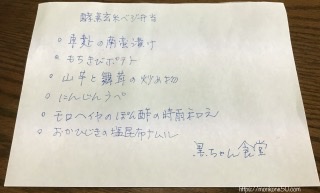 酵素玄米ベジ弁当
○ 車麩の南蛮漬け
○ もちきびポテト
○ 山芋と舞茸の炒め物
○ にんじんラペ
○ モロヘイヤのぽん酢の時雨和え
○ おかひじきの塩昆布ナムル
黒ちゃん食堂
https://monkane50.com